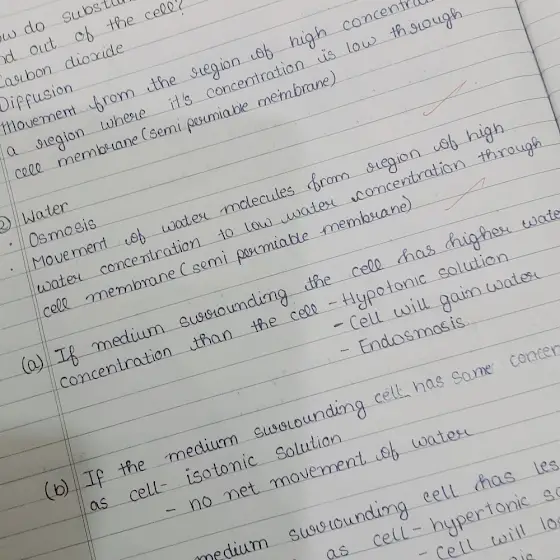 do substan
out of the cell?
Carbon dioxide
Diffusion
Movement from the region of high concentra
a region where it's concentration is low through
cell membrane (semi permiable membrane)
② Water
· Osmosis
· Movement of water molecules from region of high
water concentration to low water concentration through
cell membrane (semi permiable membrane)
(a) If medium surrounding the cell has higher wate
concentration than the cell - Hypotonic solution
- Cell will gain water
- Endosmosis
(b) If the medium surrounding cell has same concen
as cell- isotonic solution
- no net movement of water
medium surrounding cell has les
as cell - hypertonic so
- cell will lo